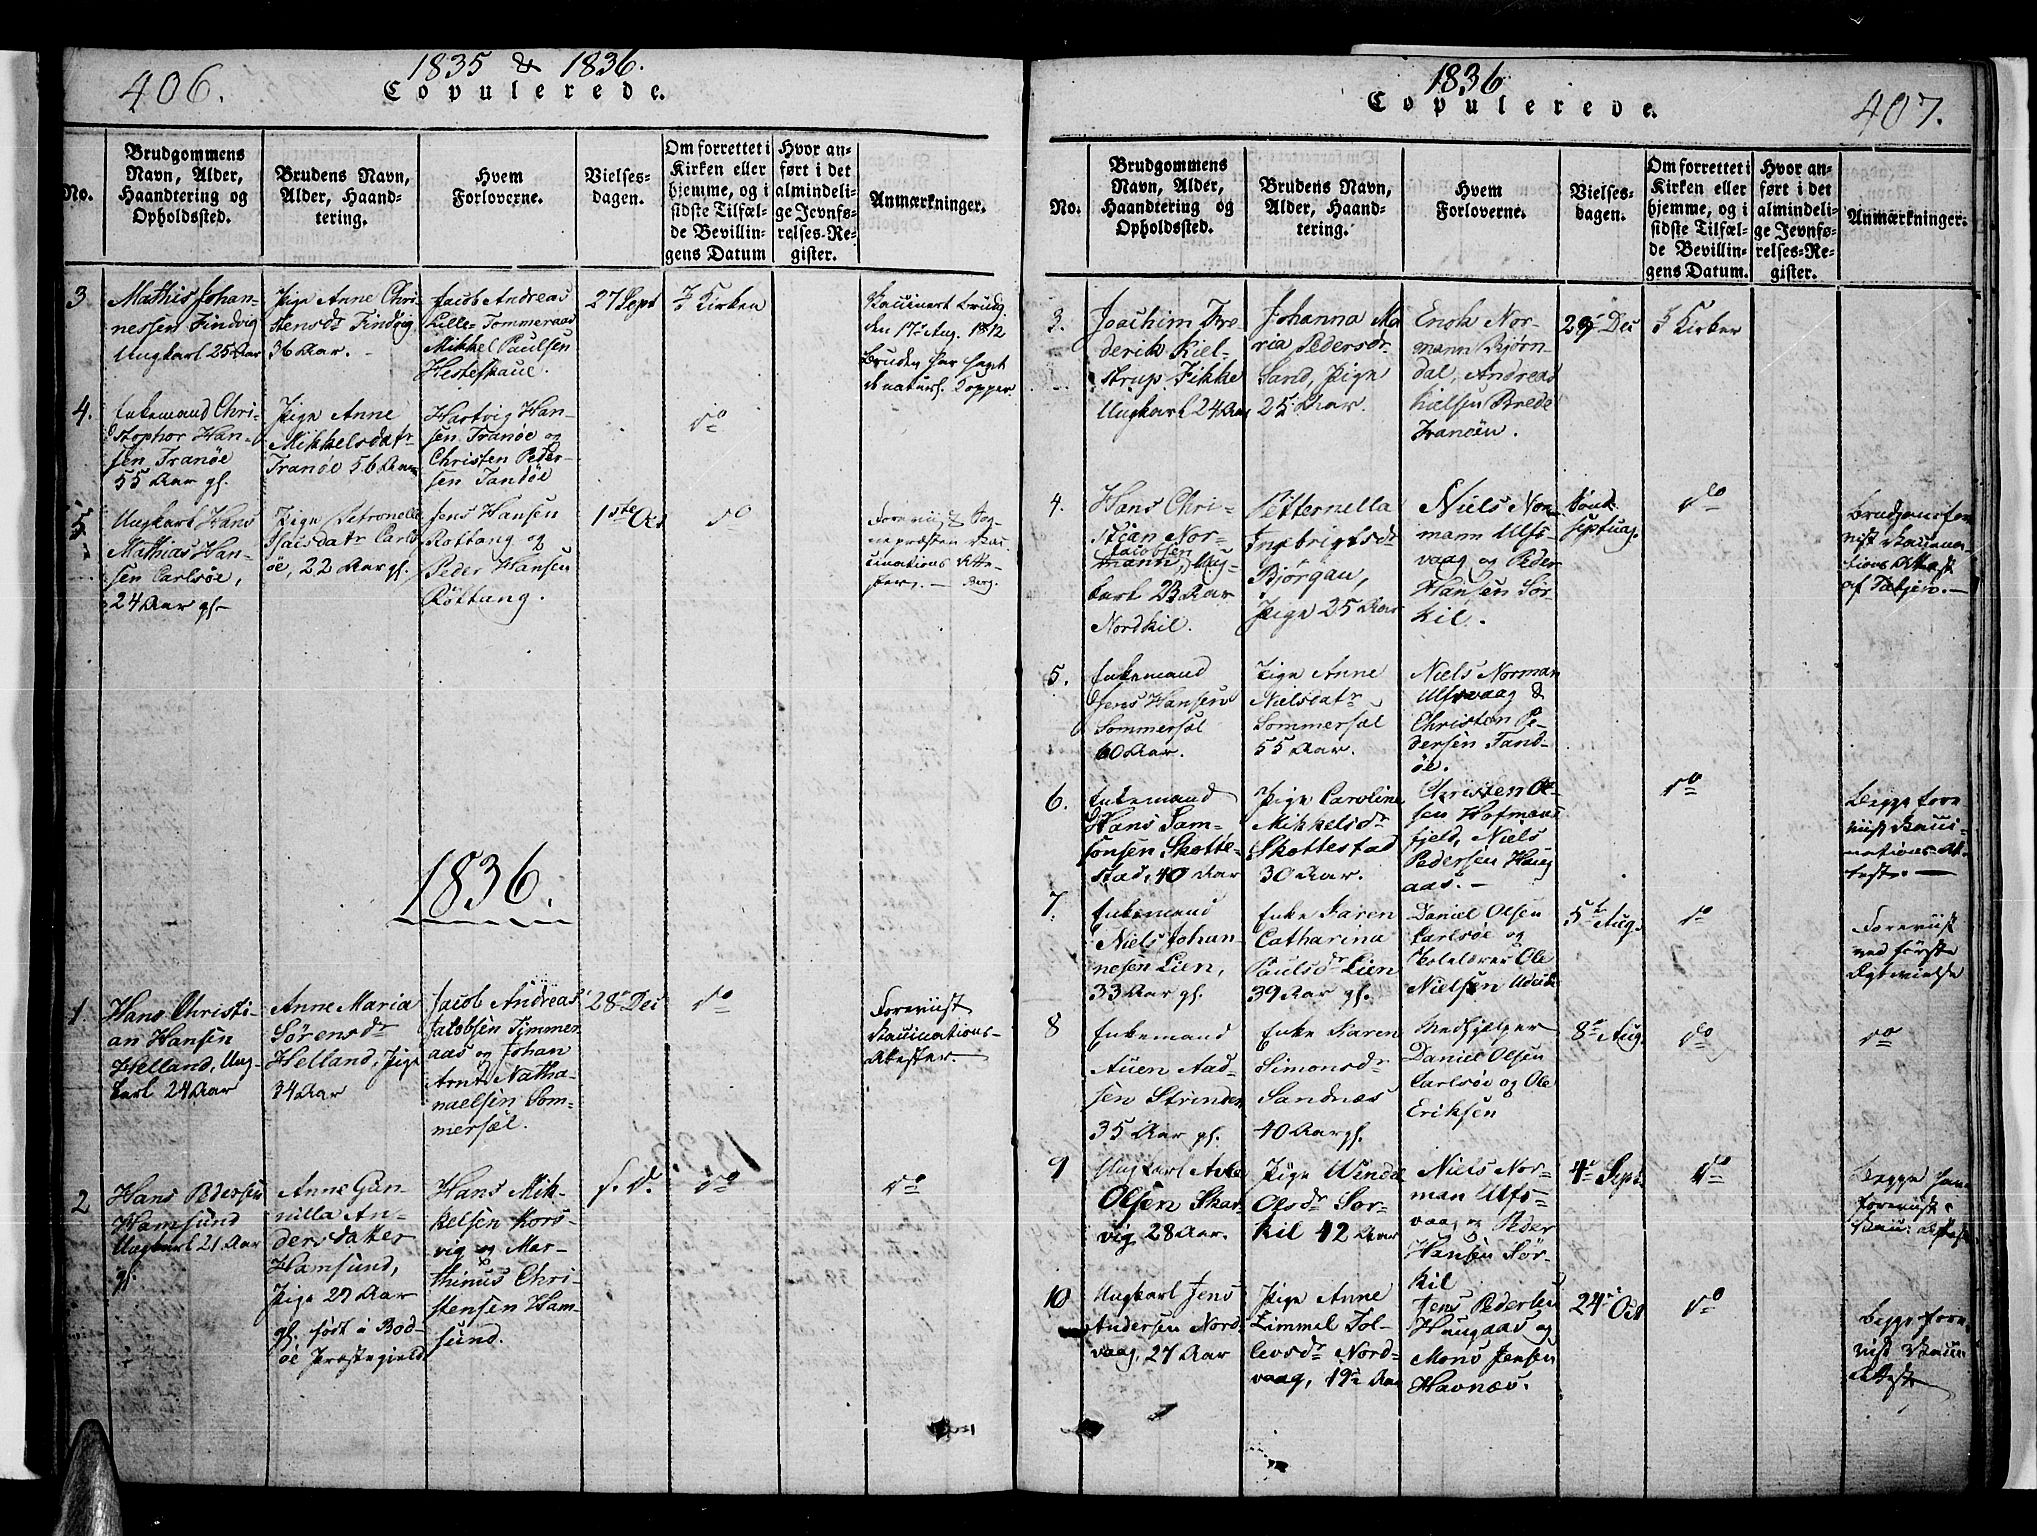 406.
1835 & 1836.
Copulerede.
No.
Brudgommens
Navn, Alder,
Haandtering og
Opholdssted.
Brudens Navn,
Alder, Haand-
tering.
Hvem
Forloverne.
Vielses-
dagen.
Om forrettet i
Kirken eller
hjemme, og i
sidste Tilfæl-
de Bevillin-
gens Datum
Hvor an-
ført i det
almindeli-
ge Jevnfø-
relses-Re-
gister.
Anmærkninger.
3
Mathis Johan-
nessen Findvig
Ungkarl 25 Aar
Pige Anne Chri-
stensdr Findvig
36 Aar.
Jacob Andreas
Lille-Tommeraas
Mikkel Paulsen
Hesteskaue.
27 Sept
I Kirken
Vaccineret Brudg.
den 17 Aug. 1812
Bruden har havt
de naturl. Kopper.
4.
Enkemand Chri-
stopher Han-
sen Tranöe
55 Aar gl.
Pige Anne
Mikkelsdatr
Tranöe 56 Aar
Hartvig Han-
sen Tranöe og
Christen Peder-
sen Tandöe
do
5
Ungkarl Hans
Mathias Han-
sen Carlsöe,
24 Aar gl.
Pige Petronelle
Isaisdatr Carls-
öe, 22 Aar gl.
Jens Hansen
Rottang og
Peder Hansen
Röttang.
1ste Oct
do
1836.
1.
Hans Christi-
an Hansen
Helland, Ung-
karl 24 Aar
Anne Maria
Sörensdr
Helland, Pige
34 Aar
Jacob Andreas
Jacobsen Timmer-
aas og Johan
Arnt Natha-
naelsen Som-
mersæl.
28 Dec
do
Foreviist
Vaccinations-
Attester.
2
Hans Pedersen
Hamsund
Ungkarl 21 Aar
gl.
Anne Gun-
nilla An-
dersdatter
Hamsund,
Pige 27 Aar
gl. født i Bod-
öe Præstegield
Hans Mik-
kelsen Kors-
vig og Mar-
thinus Chri-
stensen Ham-
sund.
s. d.
do
do
1836
Copulerede.
407.
No.
Brudgommens
Navn, Alder,
Haandtering og
Opholdssted.
Brudens Navn,
Alder, Haand-
tering.
Hvem
Forloverne.
Vielses-
dagen.
Om forrettet i
Kirken eller
hjemme, og i
sidste Tilfæl-
de Bevillin-
gens Datum.
Hvor an-
ført i det
almindeli-
ge Jevnfø-
relses-Re-
gister.
Anmærkninger.
3.
Joachim Fre-
derik Kiel-
strup Fikke
Ungkarl 24 Aar
Johanna Ma-
ria Pedersdr
Sand, Pige
25 Aar.
Enok Nor-
mann Bjørn-
dal, Andreas
Tranöen.
29 Dec
I Kirken
4.
Hans Chri-
stian Nor-
Jacobsen
mann, Ung-
karl 23 Aar
Nordkil.
Petternella
Ingebrigtsdr
Björgau,
Pige 25 Aar
Niels Nor-
mann Ulfs-
vaag og Peder
Hansen Sör-
kil.
Septuag.
do
5.
Enkemand
Jens Hansen
Sommersel
60 Aar.
Pige Anne
Nielsdatr
Sommersæl
55 Aar.
Niels Norman
Ulfsvaag &
Christen Pe-
dersen Tand-
öe.
6.
Enkemand
Hans Sam-
sonsen Skotte-
stad, 40 Aar
Pige Caroline
Mikkelsdr
Skottestad
30 Aar.
Christen Ol-
sen Hofmans-
fjeld, Niels
Pedersen Haug-
aas.
do
Begge fore-
viist Vacci-
nations-At-
test.
7.
Enkemand
Niels Johan-
nesen Lien,
33 Aar gl.
Enke Karen
Catharina
Paulsdr Lien
39 Aar gl.
Daniel Olsen
Carlsöe og
Skolelærer Ole
Nielsen
5t Aug.
do
Foreviist
ved første
Ægtevielse
8
Enkemand
Auen Aad-
sen Strinden
35 Aar gl.
Enke Karen
Simonsdr
Sandnæs
40 Aar gl.
Medhjelper
Daniel Olsen
Carlsöe og Ole
Eriksen
8 Aug.
do
do
9
Ungkarl
Olsen Skar-
vig, 28 Aar.
Pige
Olsdr Sör-
kil 42 Aar
Niels Nor-
man Ulfs-
vaag og Peder
Hansen Sör-
kil
4 Sept
do
10
Ungkarl Jens
Andersen Nord-
vaag, 27 Aar
Pige Anne
Zimmel Tol-
levsdr Nord-
vaag, 19 Aar
Jens Pedersen
Haugaas og
Mons Jensen
Havnæs.
24 Oct
do
Begge fore-
viist Vaccin
Attest